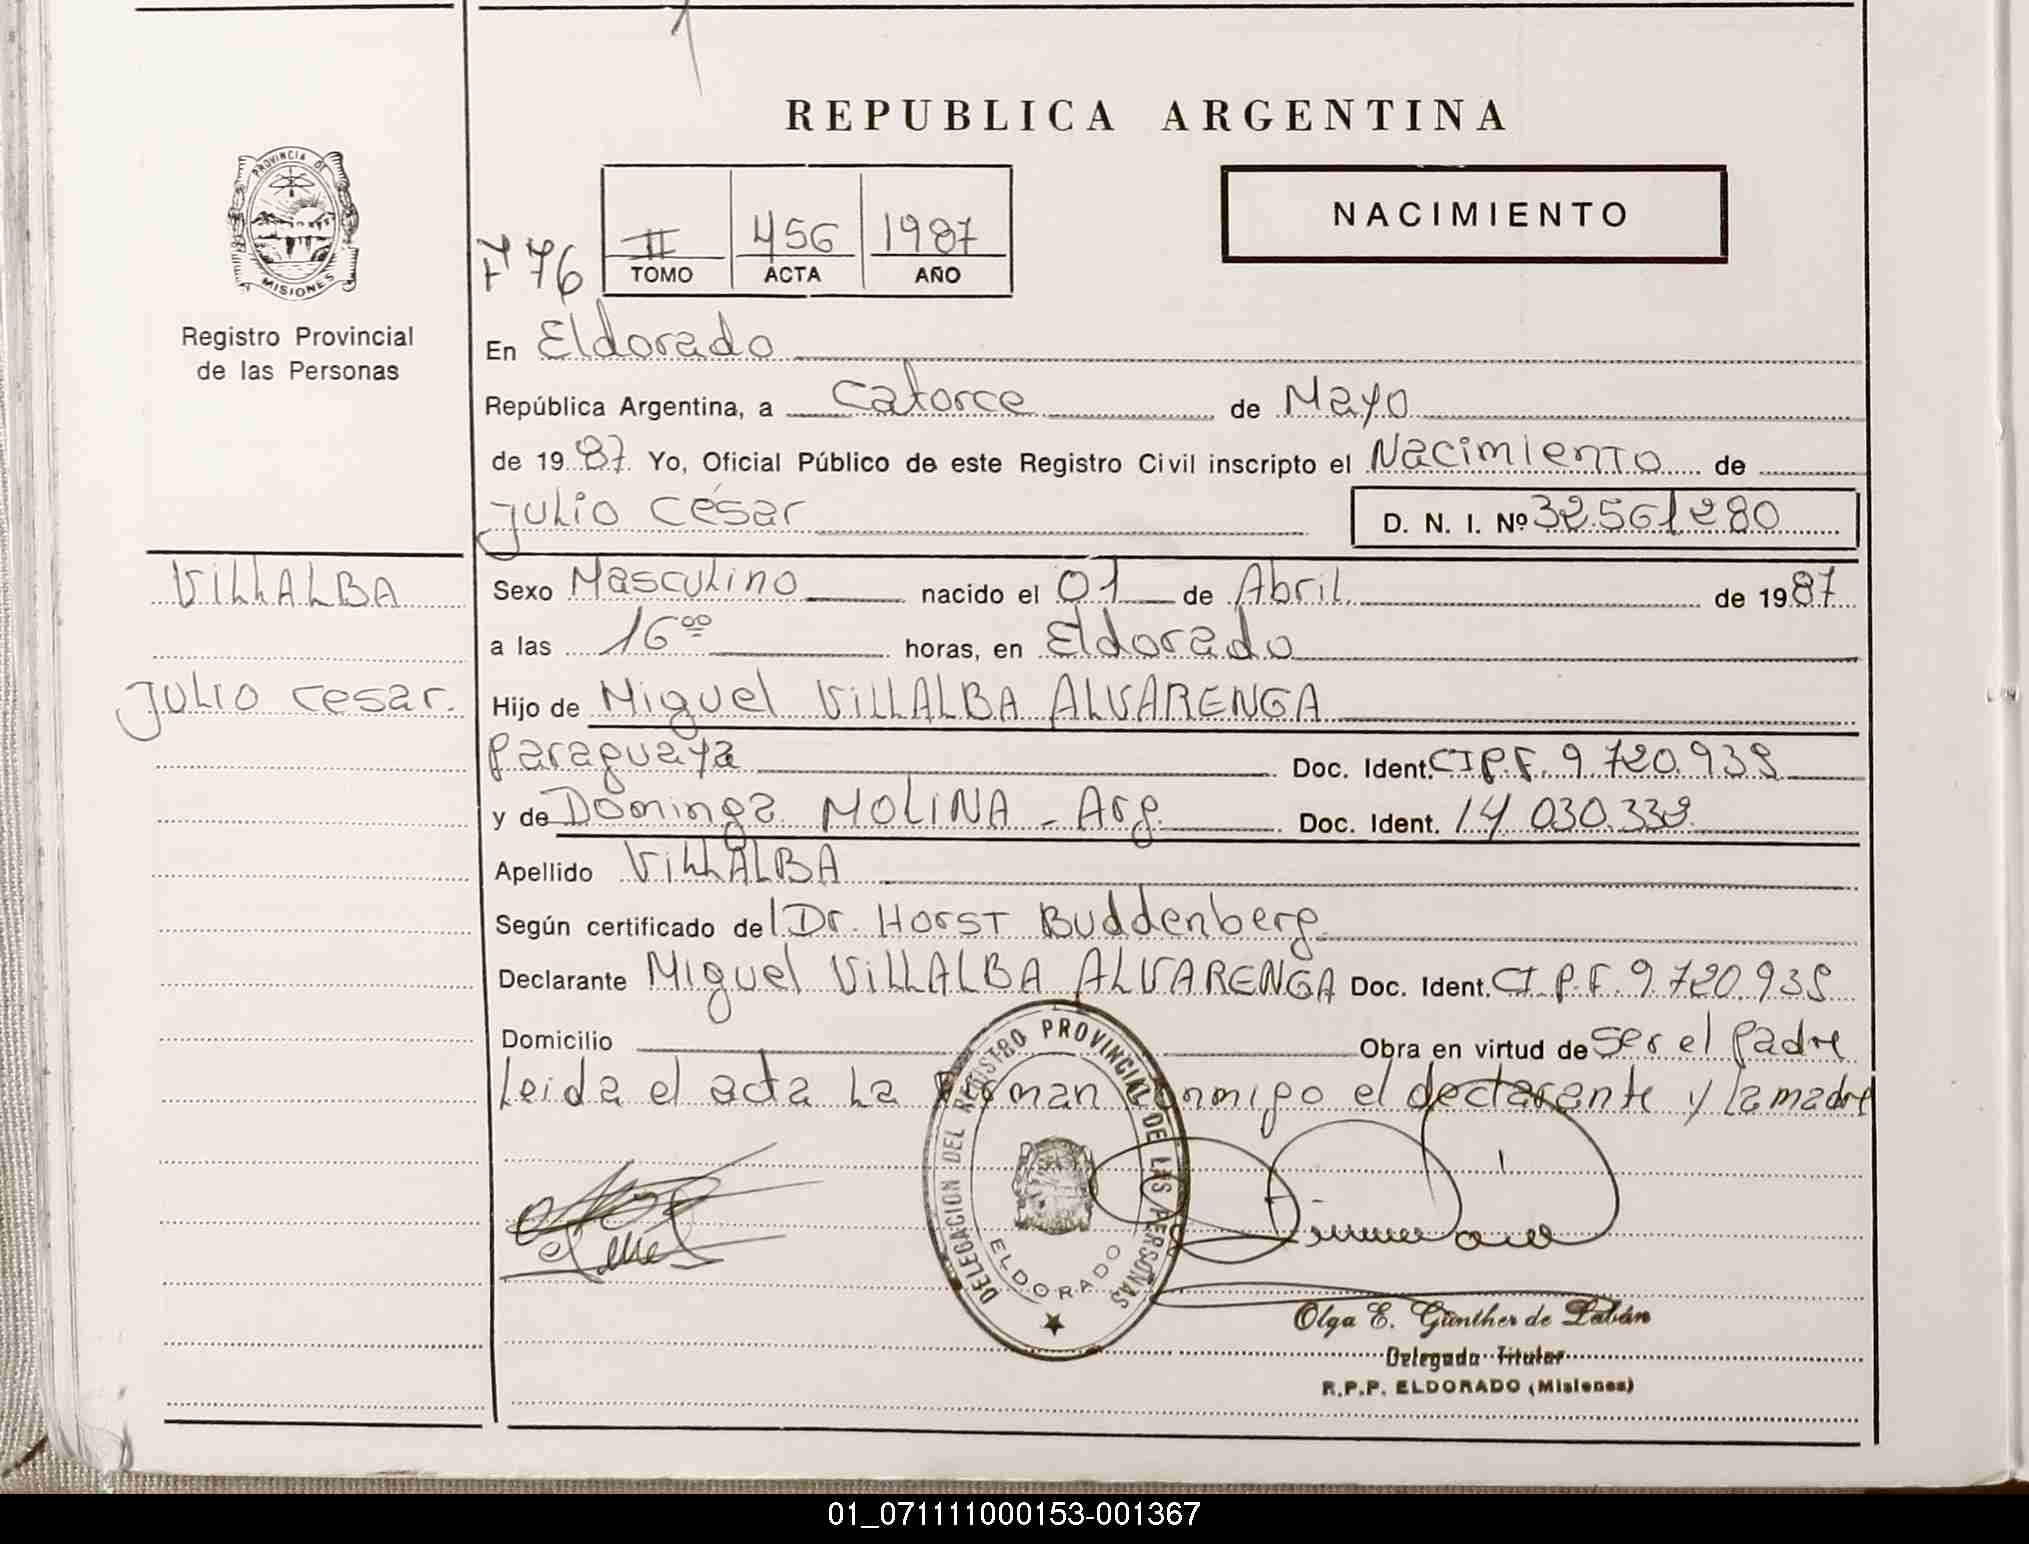 REPUBLICA ARGENTINA
PROVINCIA DE
MISIONES
Registro Provincial
de las Personas
NACIMIENTO
F° 76
II 456 1987
TOMO ACTA AÑO
En Eldorado
República Argentina, a catorce de Mayo
de 1987 Yo, Oficial Público de este Registro Civil inscripto el Nacimiento de
Julio César D. N. I. Nº 32.561.280
VILLALBA
Julio Cesar.
Sexo Masculino nacido el 01 de Abril de 1987
a las 16 00 horas, en Eldorado
Hijo de Miguel VILLALBA ALVARENGA
Paraguaya Doc. Ident. CI P.F. 9.720.939
y de Dominga MOLINA - Arg. Doc. Ident. 14 030.339
Apellido VILLALBA
Según certificado del Dr. Horst Buddenberg
Declarante Miguel VILLALBA ALVARENGA Doc. Ident. CI P.F. 9.720.939
Domicilio Obra en virtud de ser el padre
Leida el acta la firman conmigo el declarante y la madre
DELEGACION DEL REGISTRO PROVINCIAL DE LAS PERSONAS
ELDORADO
Olga E. Günther de Labán
Delegada Titular
R.P.P. ELDORADO (Misiones)
01_071111000153-001367